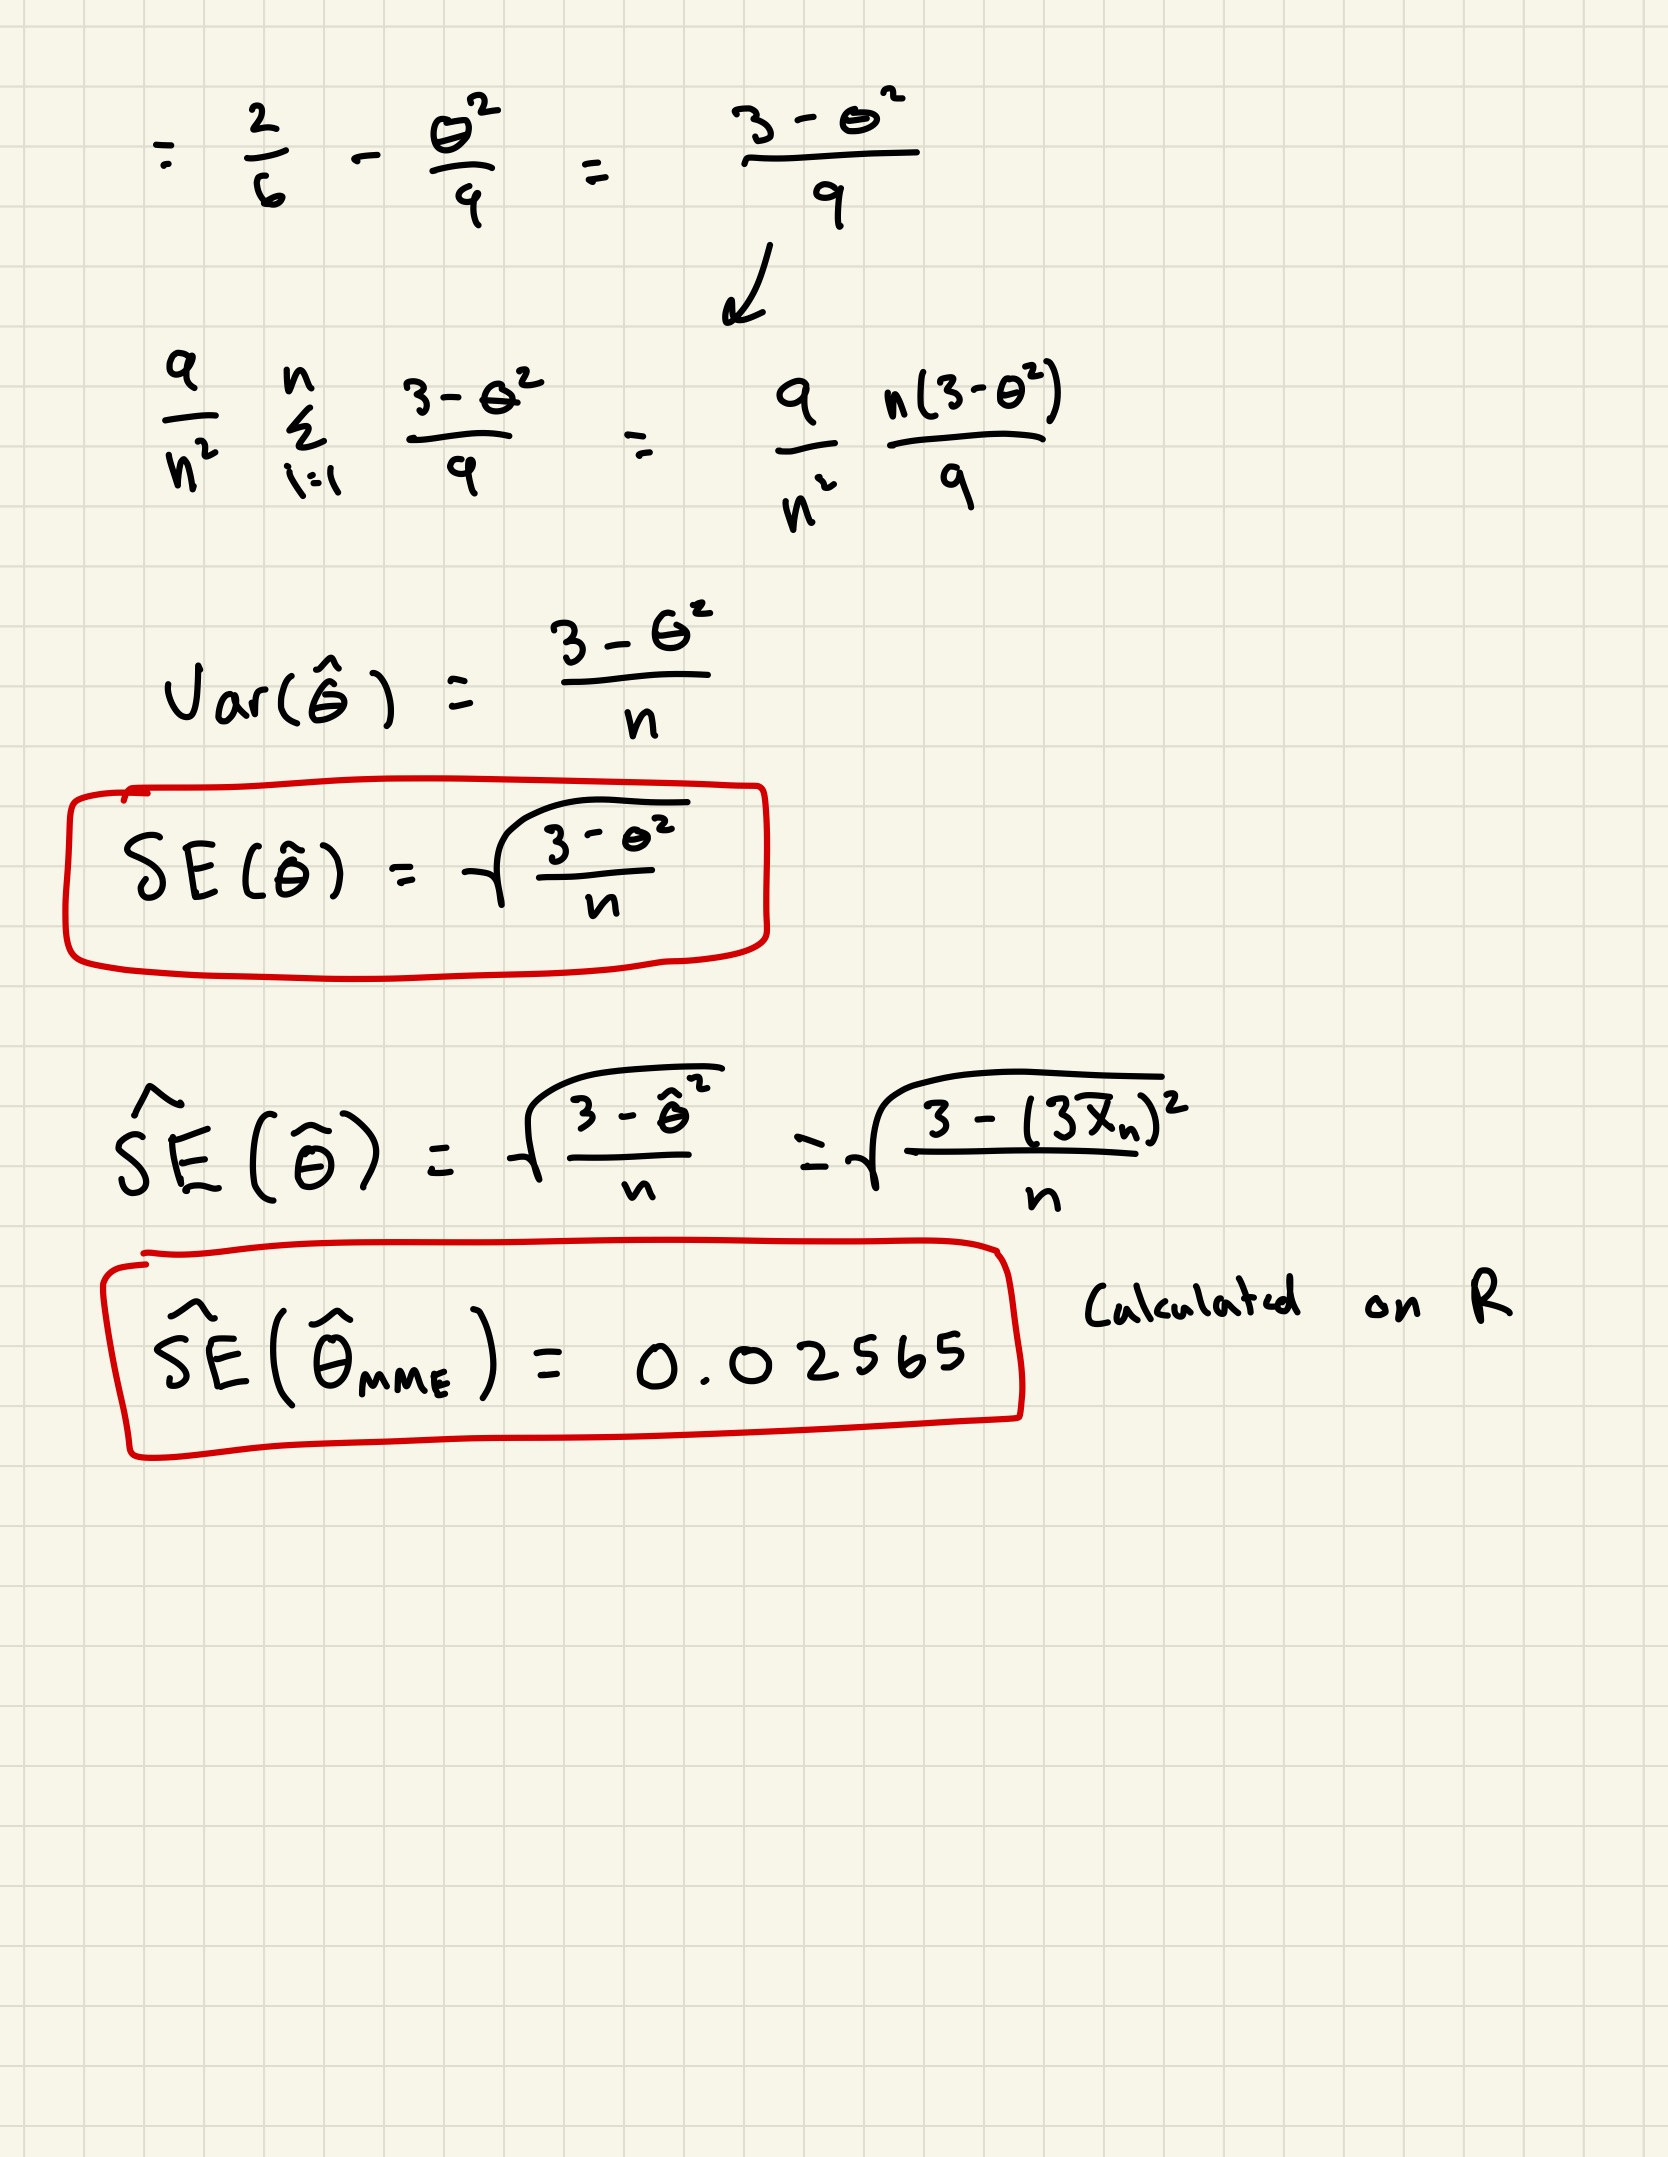 = 2/6 - θ²/9 = (3 - θ²)/9
↙
9/n² Σ_{i=1}^{n} (3 - θ²)/9 = 9/n² n(3 - θ²)/9
Var(θ̂) = (3 - θ²)/n
SE(θ̂) = √((3 - θ²)/n)
ŜE(θ̂) = √((3 - θ̂²)/n) = √((3 - (3X̄ₙ)²)/n)
ŜE(θ̂_MME) = 0.02565 Calculated on R